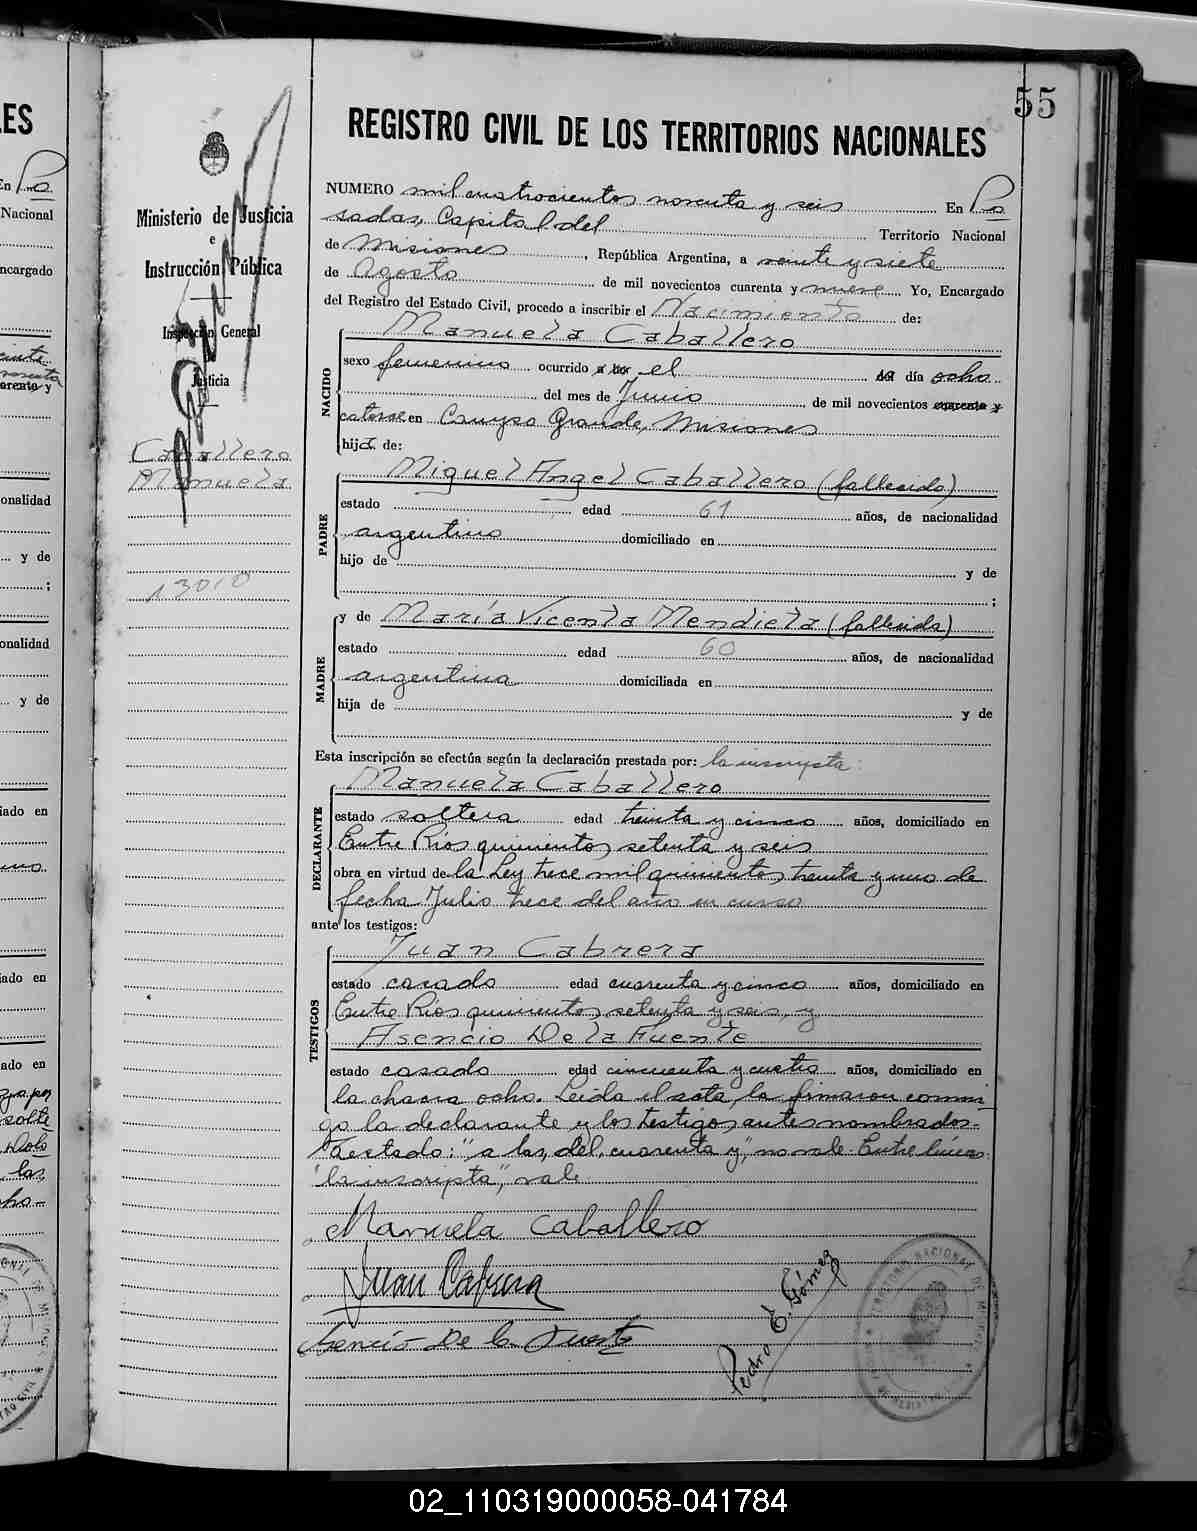 55
REGISTRO CIVIL DE LOS TERRITORIOS NACIONALES
Ministerio de Justicia
e
Instrucción Pública
Inspección General
de
Justicia
Caballero
Manuela
13010
NUMERO mil cuatrocientos noventa y seis En Po
sadas, Capital del Territorio Nacional
de Misiones, República Argentina, a veinte y siete
de Agosto de mil novecientos cuarenta y nueve Yo, Encargado
del Registro del Estado Civil, procedo a inscribir el Nacimiento de:
Manuela Caballero
NACIDO
sexo femenino ocurrido a las el del día ocho
del mes de Junio de mil novecientos cuarenta y
catorce en Campo Grande, Misiones
hija de:
Miguel Angel Caballero (fallecido)
PADRE
estado edad 61 años, de nacionalidad
argentino domiciliado en
hijo de y de
;
y de María Vicenta Mendieta (fallecida)
MADRE
estado edad 60 años, de nacionalidad
argentina domiciliada en
hija de y de
Esta inscripción se efectúa según la declaración prestada por: la inscripta:
Manuela Caballero
DECLARANTE
estado soltera edad treinta y cinco años, domiciliado en
Entre Rios quinientos setenta y seis
obra en virtud de la Ley trece mil quinientos treinta y uno de
fecha Julio trece del año en curso
ante los testigos:
Juan Cabrera
TESTIGOS
estado casado edad cuarenta y cinco años, domiciliado en
Entre Rios quinientos setenta y seis, y
Asencio De la Fuente
estado casado edad cincuenta y cuatro años, domiciliado en
la chacra ocho. Leida el acta, la firmaron conmi
go la declarante y los testigos antes nombrados.
Testado: "a las, del, cuarenta y", no vale. Entre líneas:
"la inscripta", vale.
Manuela Caballero
Juan Cabrera
Asencio De la Fuente
Pedro E. Gómez
02_110319000058-041784